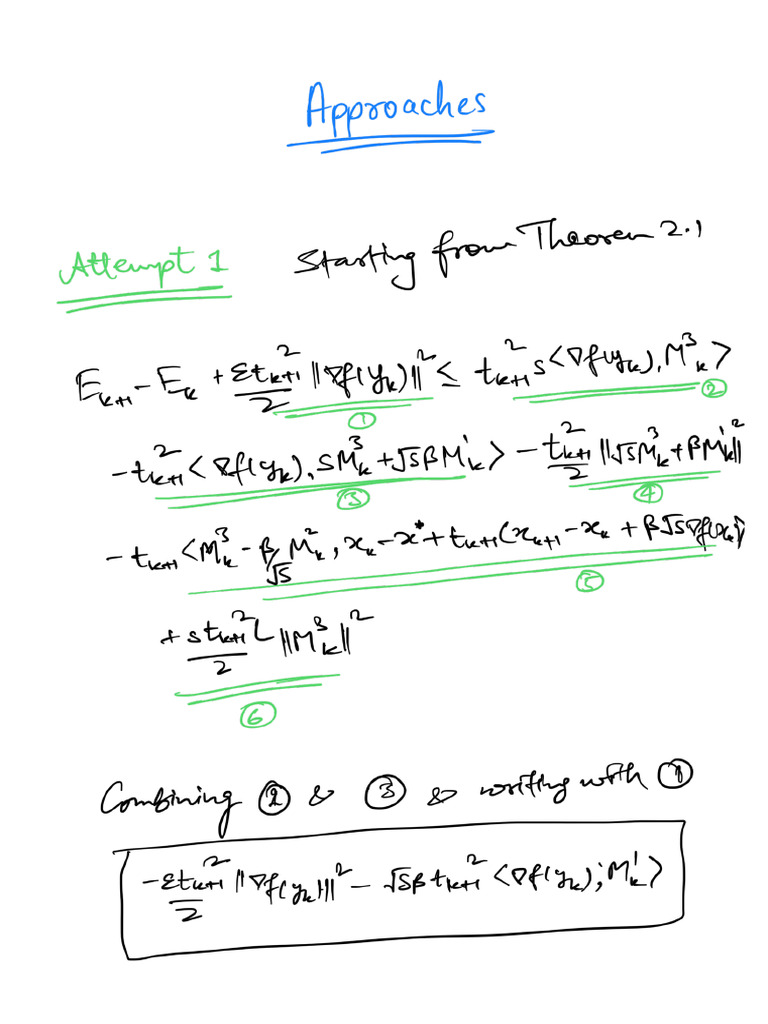 Approaches
Attempt 1 Starting from Theorem 2.1
E_{k+1} - E_k + \frac{εt_{k+1}^2}{2} ||∇f(y_k)||^2 ≤ t_{k+1}^2 s <∇f(y_k), M_k^3>
① ②
- t_{k+1}^2 <∇f(y_k), sM_k^3 + √s β M_k^1> - \frac{t_{k+1}^2}{2} ||√s M_k^3 + β M_k^1||^2
③ ④
- t_{k+1} <M_k^3 - \frac{β}{√s} M_k^2, x_k - x^* + t_{k+1}(x_{k+1} - x_k + β√s ∇f(x_k)>
⑤
+ \frac{s t_{k+1}^2 L}{2} ||M_k^3||^2
⑥
Combining ② & ③ & writing with ①
- \frac{εt_{k+1}^2}{2} ||∇f(y_k)||^2 - √s β t_{k+1}^2 <∇f(y_k), M_k^1>